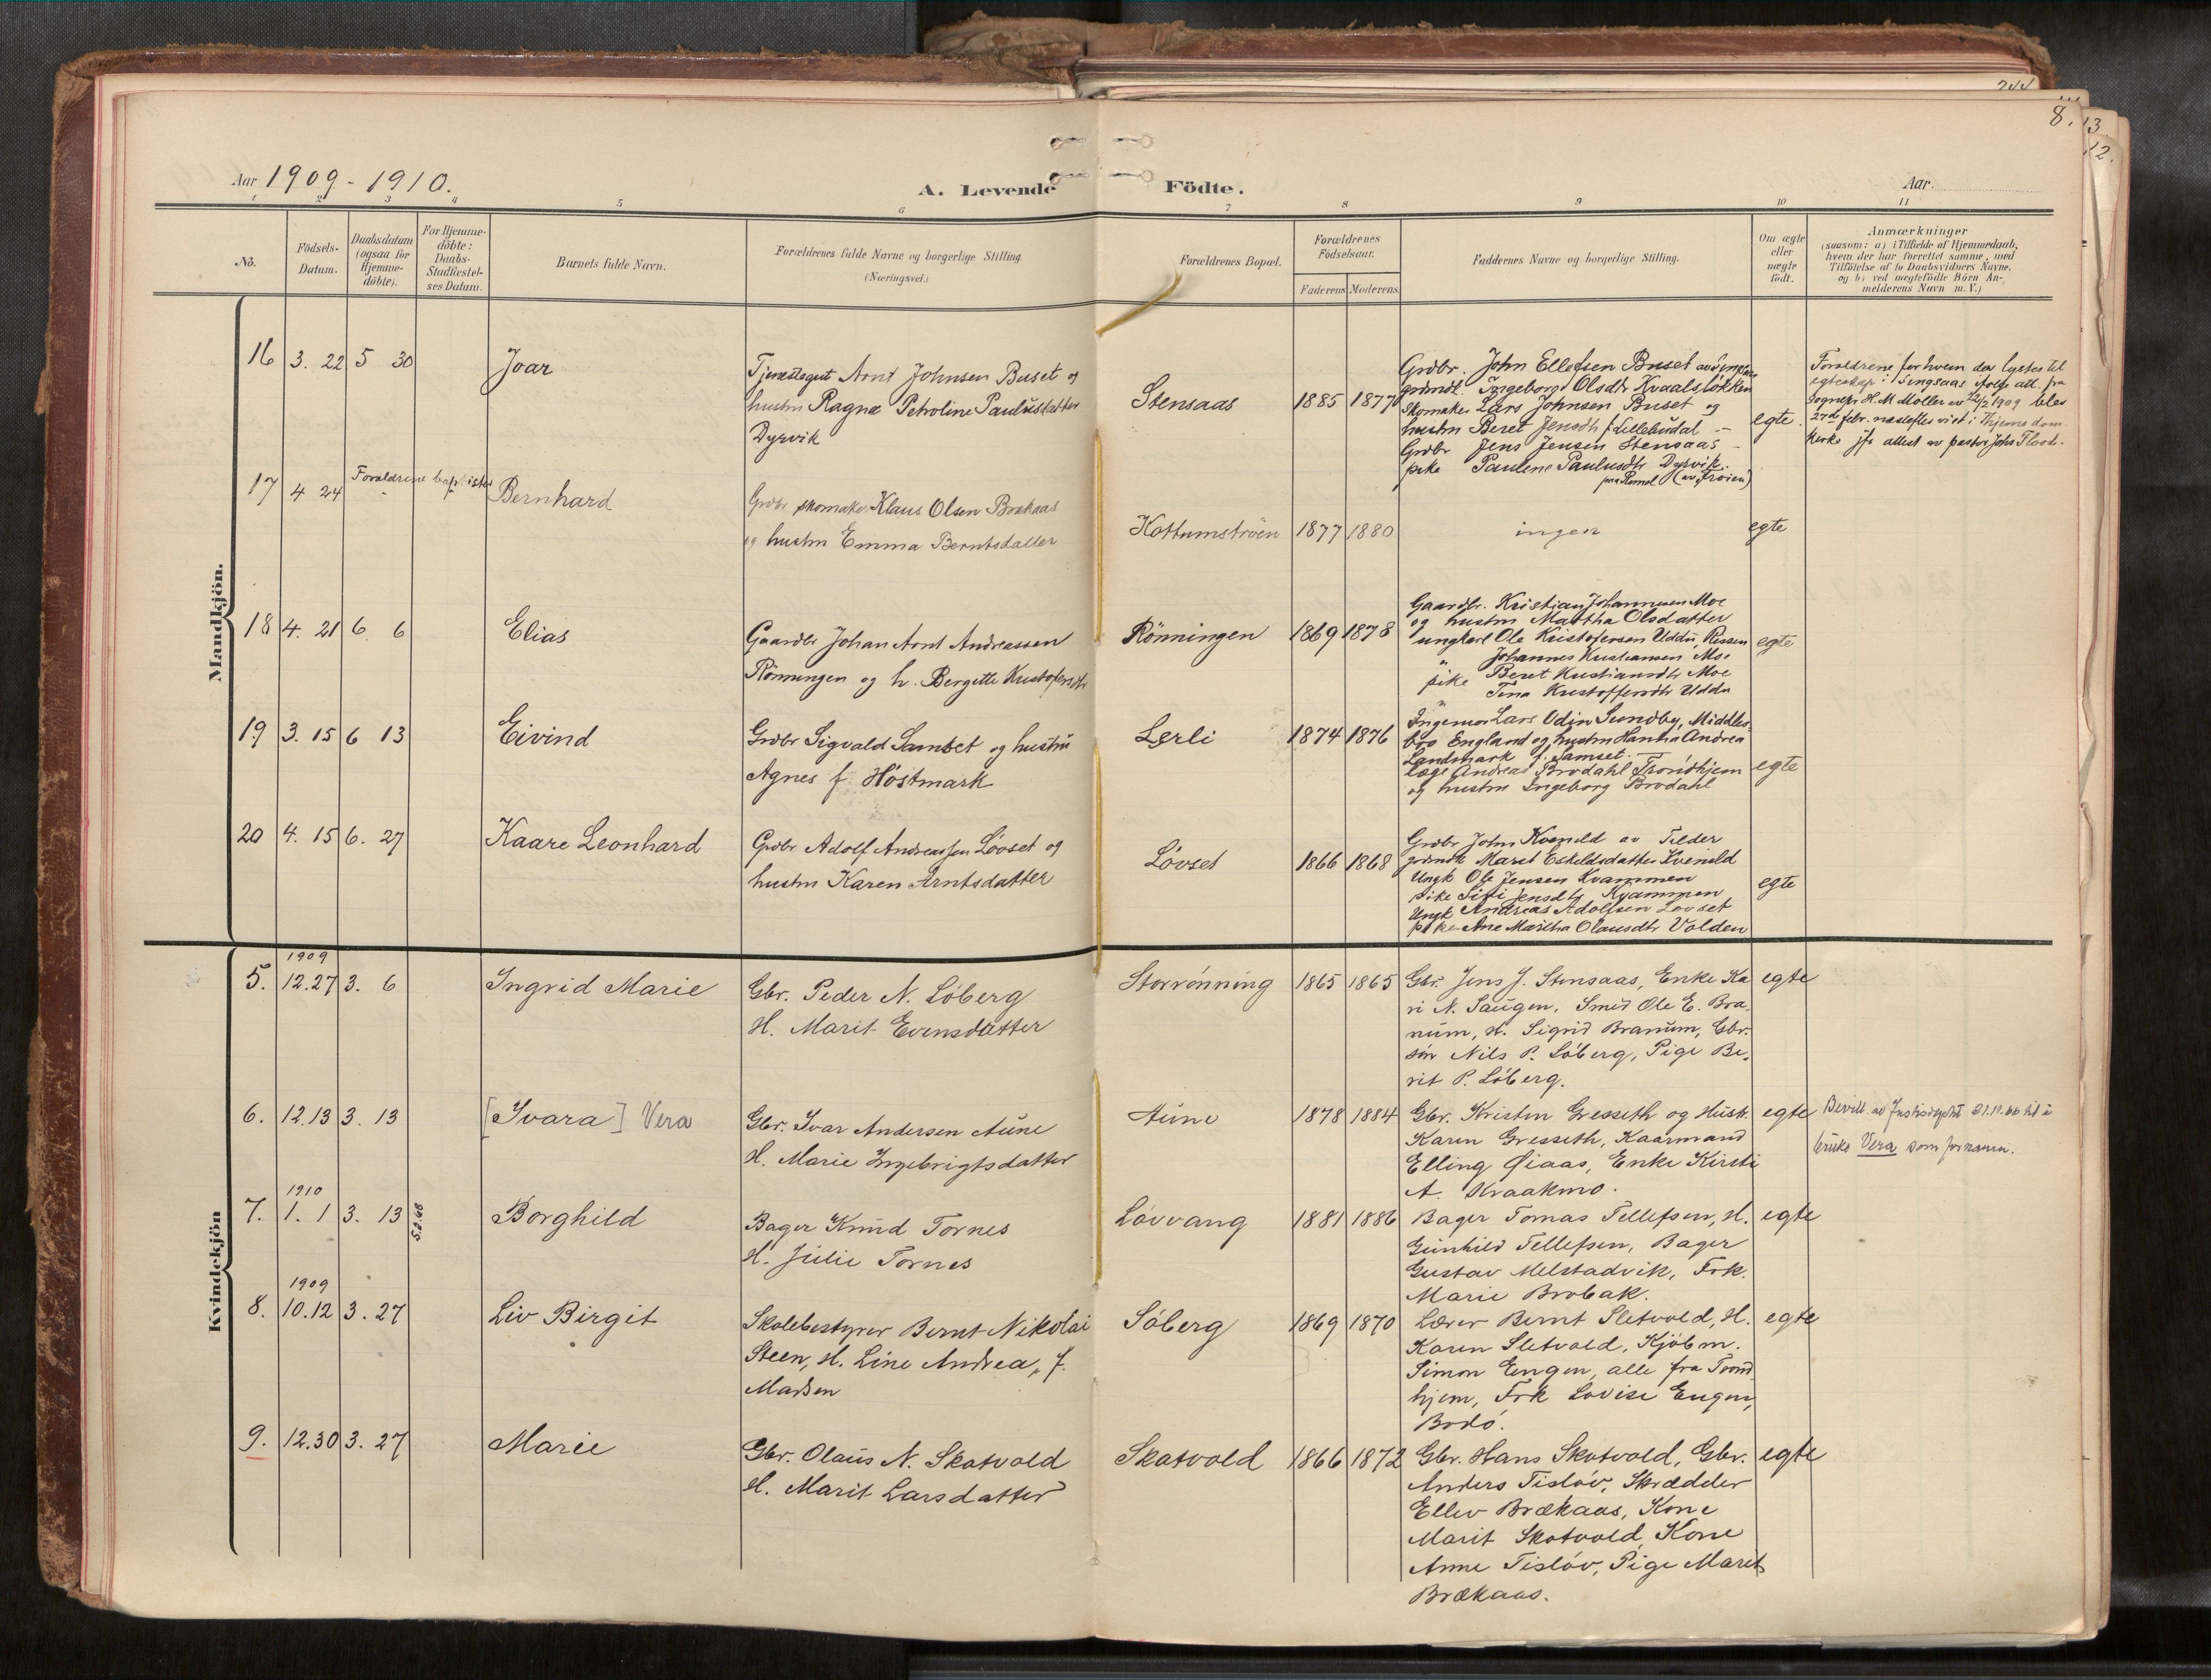 244
8.
13
12.
Aar 1909 - 1910.
A. Levende Födte.
Aar.
1 2 3 4 5 6 7 8 9 10 11
No.
Födsels-Datum.
Daabsdatum (ogsaa for Hjemme-döbte).
For Hjemme-döbte: Daabs-Stadfæstel-ses Datum.
Barnets fulde Navn.
Forældrenes fulde Navne og borgerlige Stilling (Næringsvei.)
Forældrenes Bopæl.
Forældrenes Födselsaar.
Faderens. Moderens.
Faddernes Navne og borgerlige Stilling.
Om ægte eller uægte födt.
Anmærkninger
(saasom: a) i Tilfælde af Hjemmedaab,
hvem der har forrettet samme, med
Tilföielse af to Daabsvidners Navne.
og b) ved uægtefödte Börn An-
melderens Navn m. V.)
Mandkjön.
16 3. 22 5 30 Joar
Tjenestegut Arnt Johnsen Buset og
hustru Ragna Petroline Paulusdatter
Dyrvik
Stensaas 1885 1877
Grdbr. John Ellefsen Buset av
grdmdt. Ingeborg Olsdtr Kvaalsløkken
Skomaker Lars Johnsen Buset og
hustru Beret Jensdtr f. Lillebudal
Grdbr Jens Jensen Stensaas
pike Pauline Paulusdtr Dyrvik
(av Frøien)
egte.
Forældrene for hvem der lystes til
egteskap i Singsaas ifølge att. fra
Sognepr. H. M Møller av 12/2 1909 blev
2den febr. næstefter viet i Thjems dom
kirke jfr attest av pastor Johs Flood.
17 4 24 Forældrene baptister Bernhard
Grdbr skomaker Klaus Olsen Brekaas
og hustru Emma Berntsdatter
Kottumstrøen 1877 1880 ingen egte
18 4. 21 6. 6 Elias
Gaardbr Johan Arnt Andreassen
Rönningen og h. Bergitte Kristofersdtr
Rönningen 1869 1878
Gaardbr. Kristian Johannesen Moe
og hustru Martha Olsdatter
ungkarl Ole Kristofersen Uddu, Rissen
" Johannes Kristiansen Moe
pike Beret Kristiansdtr Moe
" Tina Kristoffersdtr Uddu
egte
19. 3. 15 6 13 Eivind
Grdbr Sigvald Samset og hustru
Agnes f. Höstmark
Lerli 1874 1876
Ingeniør Lars Odin Sundby, Middles
bro England og hustru Hanna Andrea
Landmark f. Samset.
læge Andreas Brodahl Trondhjem
og hustru Ingeborg Brodahl
egte
20 4. 15 6. 27 Kaare Leonhard
Grdbr Adolf Andreassen Løvset og
hustru Karen Arntsdatter
Løvset 1866 1868
Grdbr John Kvenild av Tilder
grdmdk Marit Eskildsdatter Kvenild
Ungk Ole Jensen Kvammen
pike Siri Jensdtr Kvammen
Ungk Andreas Adolfsen Løvset
pike Ane Martha Olausdtr Volden
egte
Kvindekjön
1909
5. 12.27 3. 6 Ingrid Marie
Gbr. Peder N. Löberg
H. Marit Evensdatter
Storrönning 1865 1865
Gbr. Jens J. Stensaas, Enke Ka
ri N. Saugen, Smed Ole E. Bra
num, H. Sigrid Branum, Gbr.
sön Nils P. Löberg, Pige Be-
rit P. Löberg.
egte
6. 12.13 3. 13 [Ivara] Vera
Gbr. Ivar Andersen Aune
H. Marie Ingebrigtsdatter
Aune 1878 1884
Gbr. Kristen Gresseth og Hustr.
Karen Gresseth, Kaarmand
Elling Øiaas, Enke Kirsti
A. Kraakmo.
egte
Bevill. av Justisdept 21.11.66 til å
bruke Vera som fornavn.
1910
7. 1. 1 3. 13 Borghild
5.2.48
Bager Knud Tornes
H. Julie Tornes
Lövvang 1881 1886
Bager Tomas Tellefsen, H.
Gunhild Tellefsen, Bager
Gustav Melstadvik, Frk.
Marie Brobak.
egte
1909
8. 10.12 3. 27 Liv Birgit
Skolebestyrer Bernt Nikolai
Steen, H. Line Andrea, f.
Madsen
Söberg 1869 1870
Lærer Bernt Sletvold, H.
Karen Sletvold, Kjöbm.
Simon Engen, alle fra Trond
hjem, Frk Lovise Engen,
Bodö.
egte
9. 12.30 3. 27 Marie
Gbr. Olaus N. Skotvold
H. Marit Larsdatter
Skotvold 1866 1872
Gbr. Hans Skotvold, Gbr.
Anders Tislöv, Skrædder
Ellev Brækaas, Kone
Marit Skotvold, Kone
Anne Tislöv, Pige Marit
Brækaas.
egte